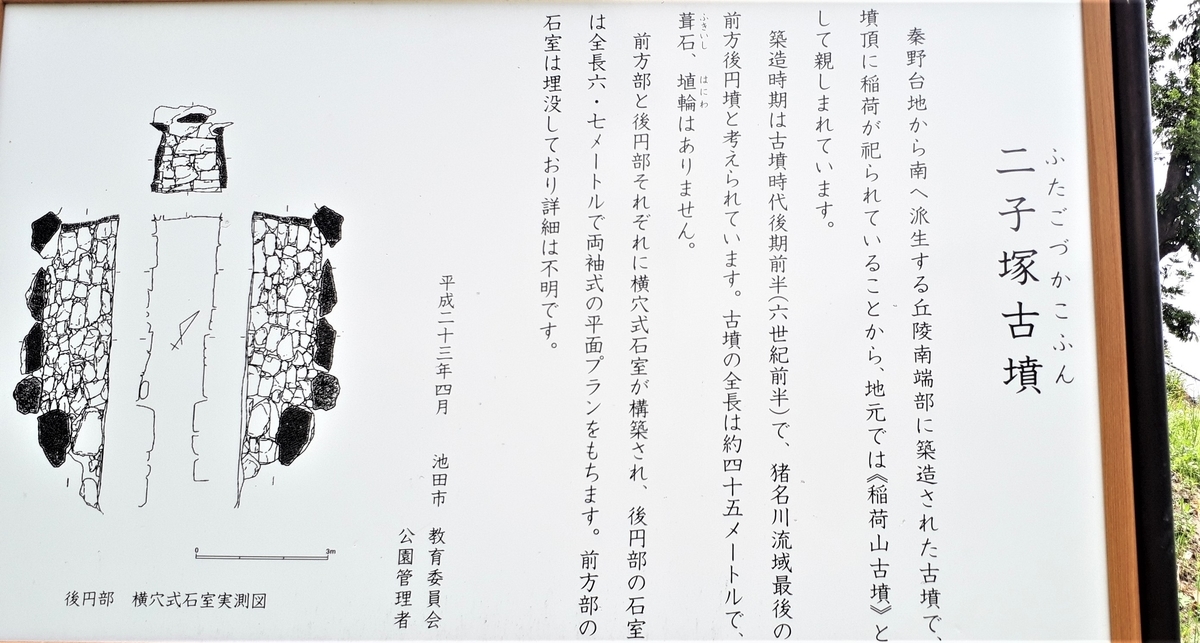 ふたごづかこふん
二子塚古墳
秦野台地から南へ派生する丘陵南端部に築造された古墳で、
墳頂に稲荷が祀られていることから、地元では《稲荷山古墳》と
して親しまれています。
築造時期は古墳時代後期前半(六世紀前半)で、猪名川流域最後の
前方後円墳と考えられています。古墳の全長は約四十五メートルで、
ふきいし はにわ
葺石、埴輪はありません。
前方部と後円部それぞれに横穴式石室が構築され、後円部の石室
は全長六・七メートルで両袖式の平面プランをもちます。前方部の
石室は埋没しており詳細は不明です。
平成二十三年四月 池田市 教育委員会
公園管理者
0 3m
後円部 横穴式石室実測図